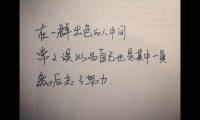 在一群出色的人中间
常常误以为自己也是其中一員
然后忘了努力